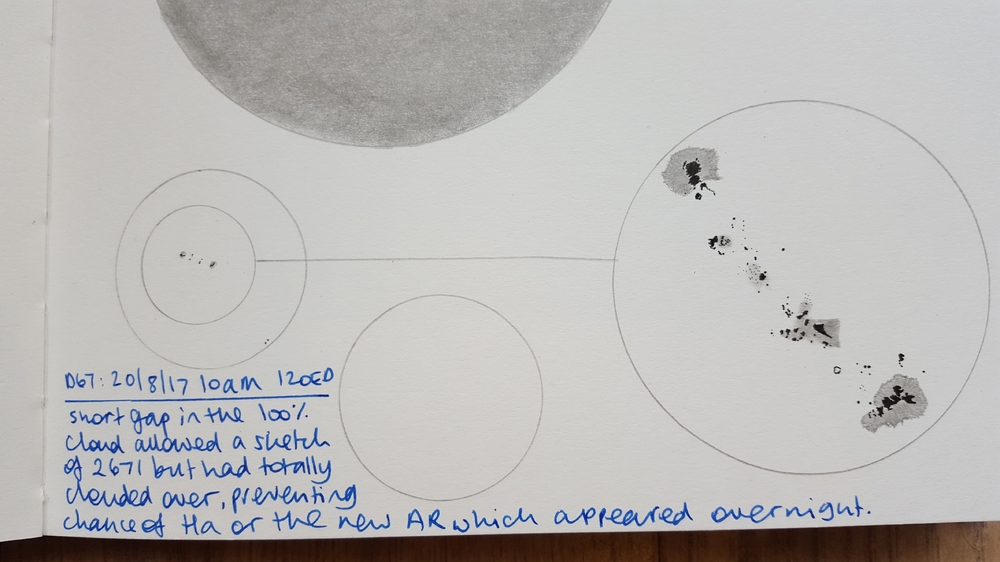 D67: 20/8/17 10am 120ED
short gap in the 100%
cloud allowed a sketch
of 2671 but had totally
clouded over, preventing
chance of Ha or the new AR which appeared overnight.